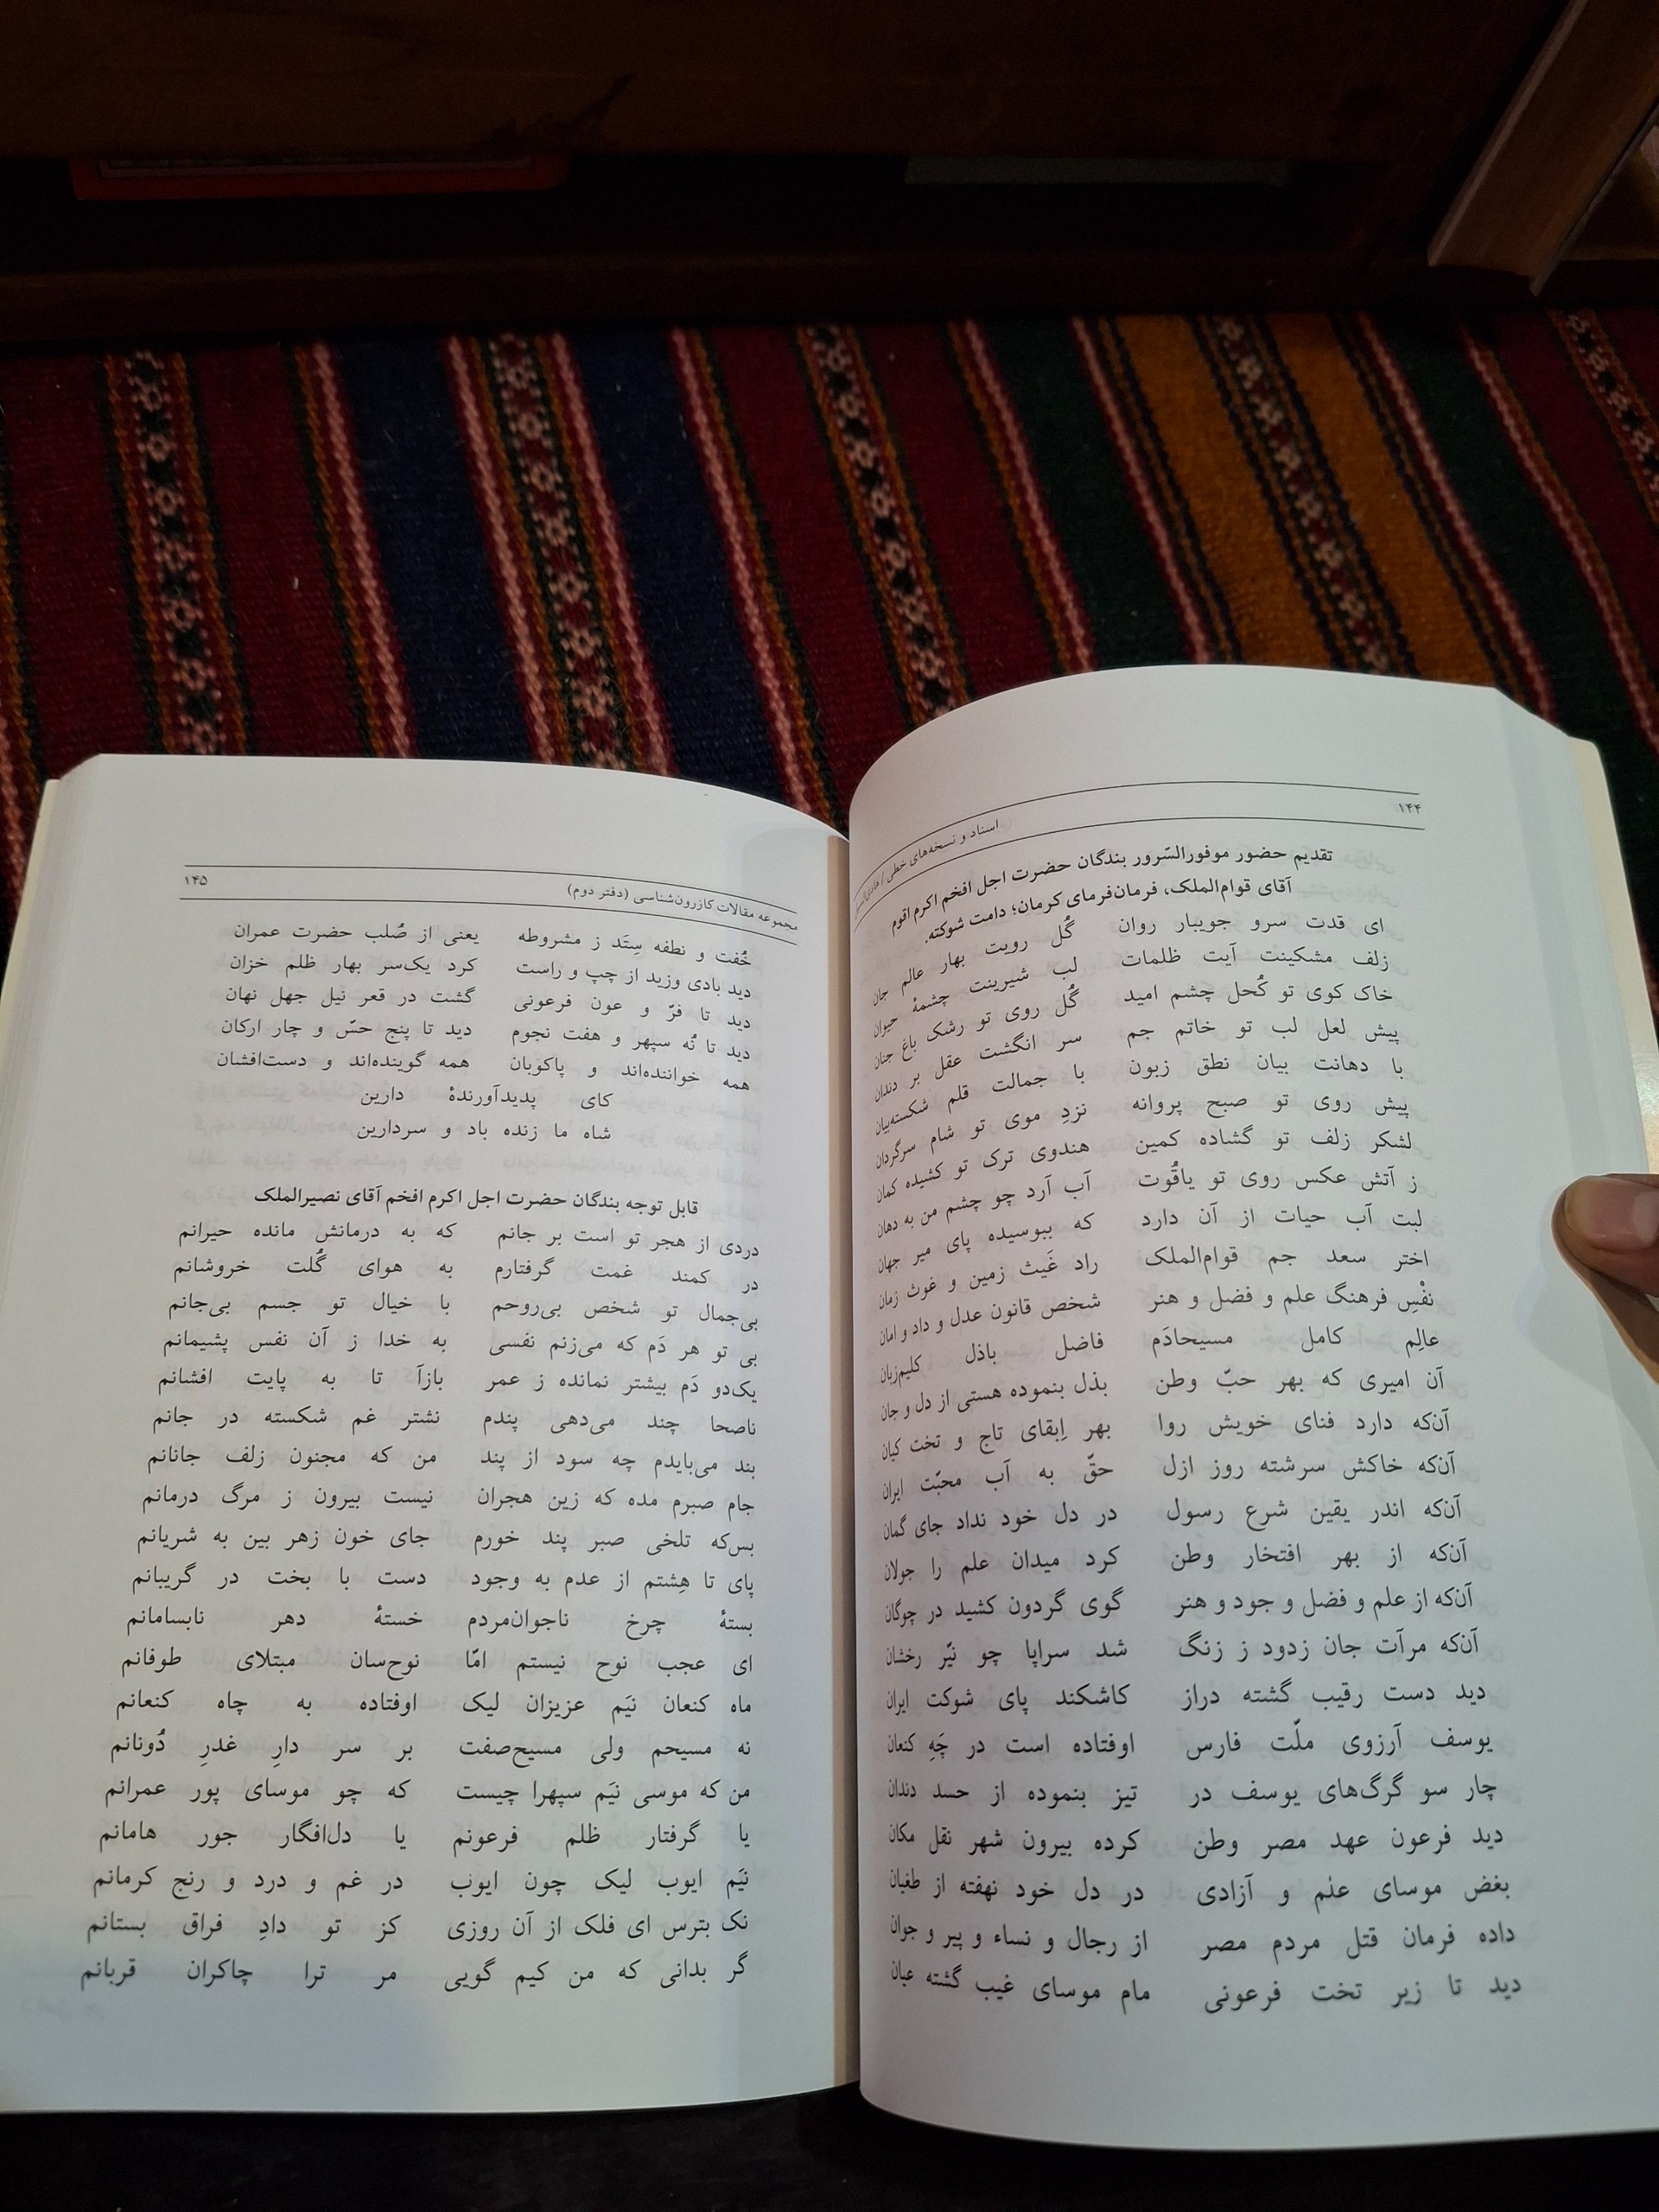 ۱۴۴
اسناد و نسخه‌های خطی /
تقدیم حضور موفورالسّرور بندگان حضرت اجل افخم اکرم اقوم
آقای قوام‌الملک، فرمان‌فرمای کرمان؛ دامت شوکته.
ای قدت سرو جویبار روان گُل رویت بهار عالم جان
زلف مشکینت آیت ظلمات لب شیرینت چشمهٔ حیوان
خاک کوی تو کُحل چشم امید گُل روی تو رشک باغ جنان
پیش لعل لب تو خاتم جم سر انگشت عقل بر دندان
با دهانت بیان نطق زبون با جمالت قلم شکسته‌بیان
پیش روی تو صبح پروانه نزدِ موی تو شام سرگردان
لشکر زلف تو گشاده کمین هندوی ترک تو کشیده کمان
ز آتش عکس روی تو یاقُوت آب آرد چو چشم من به دهان
لبت آب حیات از آن دارد که ببوسیده پای میر جهان
اختر سعد جم قوام‌الملک راد غَیث زمین و غوث زمان
نفْسِ فرهنگ علم و فضل و هنر شخص قانون عدل و داد و امان
عالِم کامل مسیحادَم فاضل باذل کلیم‌زبان
آن امیری که بهر حبّ وطن بذل بنموده هستی از دل و جان
آن‌که دارد فنای خویش روا بهر اِبقای تاج و تخت کیان
آن‌که خاکش سرشته روز ازل حقّ به آب محبّت ایران
آن‌که اندر یقین شرع رسول در دل خود نداد جای گمان
آن‌که از بهر افتخار وطن کرد میدان علم را جولان
آن‌که از علم و فضل و جود و هنر گوی گردون کشید در چوگان
آن‌که مرآت جان زدود ز زنگ شد سراپا چو نیّر رخشان
دید دست رقیب گشته دراز کاشکند پای شوکت ایران
یوسف آرزوی ملّت فارس اوفتاده است در چَهِ کنعان
چار سو گرگ‌های یوسف در تیز بنموده از حسد دندان
دید فرعون عهد مصر وطن کرده بیرون شهر نقل مکان
بغض موسای علم و آزادی در دل خود نهفته از طغیان
داده فرمان قتل مردم مصر از رجال و نساء و پیر و جوان
دید تا زیر تخت فرعونی مام موسای غیب گشته عیان
مجموعه مقالات کازرون‌شناسی (دفتر دوم)
۱۴۵
خُفت و نطفه سِتَد ز مشروطه یعنی از صُلب حضرت عمران
دید بادی وزید از چپ و راست کرد یک‌سر بهار ظلم خزان
دید تا فرّ و عون فرعونی گشت در قعر نیل جهل نهان
دید تا نُه سپهر و هفت نجوم دید تا پنج حسّ و چار ارکان
همه خواننده‌اند و پاکوبان همه گوینده‌اند و دست‌افشان
کای پدیدآورندهٔ دارین
شاه ما زنده باد و سردارین
قابل توجه بندگان حضرت اجل اکرم افخم آقای نصیرالملک
دردی از هجر تو است بر جانم که به درمانش مانده حیرانم
در کمند غمت گرفتارم به هوای گُلت خروشانم
بی‌جمال تو شخص بی‌روحم با خیال تو جسم بی‌جانم
بی تو هر دَم که می‌زنم نفسی به خدا ز آن نفس پشیمانم
یک‌دو دَم بیشتر نمانده ز عمر بازآ تا به پایت افشانم
ناصحا چند می‌دهی پندم نشتر غم شکسته در جانم
بند می‌بایدم چه سود از پند من که مجنون زلف جانانم
جام صبرم مده که زین هجران نیست بیرون ز مرگ درمانم
بس‌که تلخی صبر پند خورم جای خون زهر بین به شریانم
پای تا هِشتم از عدم به وجود دست با بخت در گریبانم
بستهٔ چرخ ناجوان‌مردم خستهٔ دهر نابسامانم
ای عجب نوح نیستم امّا نوح‌سان مبتلای طوفانم
ماه کنعان نیَم عزیزان لیک اوفتاده به چاه کنعانم
نه مسیحم ولی مسیح‌صفت بر سر دارِ غدرِ دُونانم
من که موسی نیَم سپهرا چیست که چو موسای پور عمرانم
یا گرفتار ظلم فرعونم یا دل‌افگار جور هامانم
نیَم ایوب لیک چون ایوب در غم و درد و رنج کرمانم
نک بترس ای فلک از آن روزی کز تو دادِ فراق بستانم
گر بدانی که من کیم گویی مر ترا چاکران قربانم